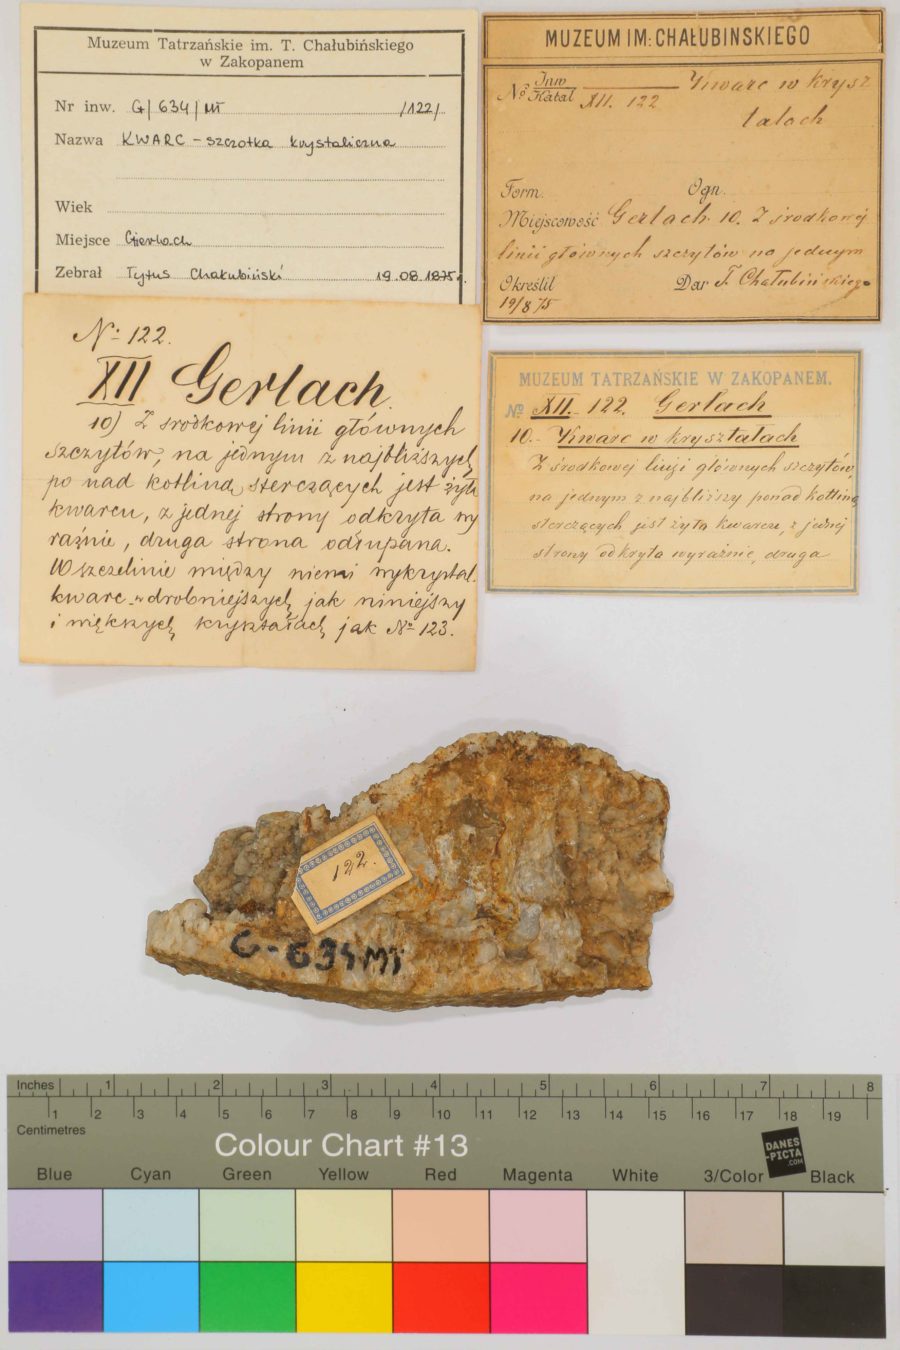 Muzeum Tatrzańskie im. T. Chałubińskiego
w Zakopanem
Nr inw. G/634/MT /122/
Nazwa KWARC - szczotka krystaliczna
Wiek
Miejsce Gierlach
Zebrał Tytus Chałubiński 19.08.1875r.
MUZEUM IM: CHAŁUBINSKIEGO
№ Inw Katal XII. 122 Kwarc w krysz
tałach
Form. Ogn.
Miejscowość Gerlach. 10. Z środkowej
linii głównych szczytów na jednym
Określił Dar T. Chałubińskiego
19/8 75
№ 122.
XII Gerlach.
10) Z srodkowej linii głównych
szczytów, na jednym z najbliższych
po nad kotliną sterczących jest żyła
kwarcu, z jednej strony odkryta wy
raźnie, druga strona odłupana.
W szczelinie między niemi wykrystal.
kwarc w drobniejszych jak niniejszy
i większych kryształach jak № 123.
MUZEUM TATRZAŃSKIE W ZAKOPANEM.
№ XII. 122. Gerlach
10. Kwarc w kryształach
Z środkowej linji głównych szczytów,
na jednym z najbliższy ponad kotliną
sterczących jest żyła kwarcu, z jednej
strony odkryta wyraźnie, druga
122.
G-634 MT
Inches 1 2 3 4 5 6 7 8
1 2 3 4 5 6 7 8 9 10 11 12 13 14 15 16 17 18 19
Centimetres
Colour Chart #13
DANES
-PICTA
.COM
Blue Cyan Green Yellow Red Magenta White 3/Color Black